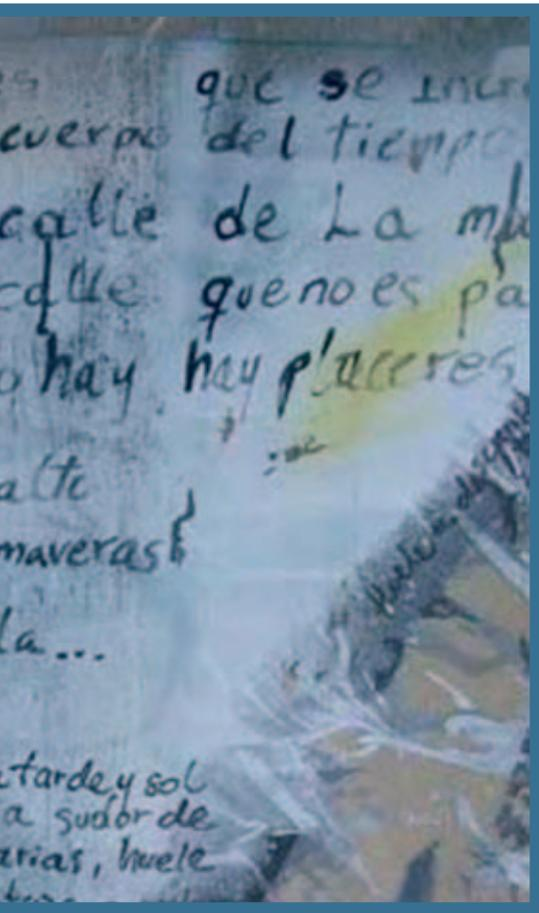 es que se incre
cuerpo del tiempo
calle de La mu
calle que no es pa
o hay hay placeres
alte
maveras
la...
tarde y sol
a sudor de
arias, huele